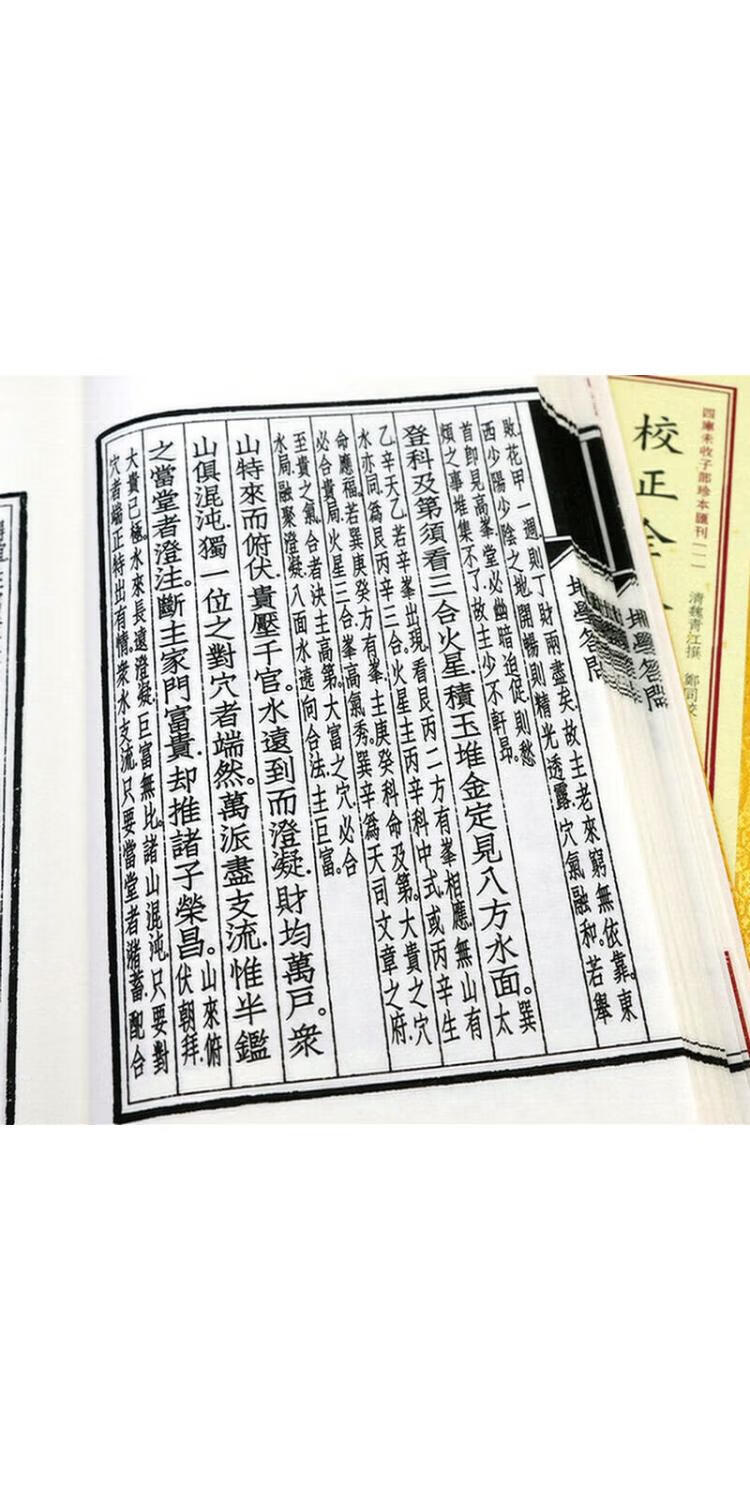 敗.花甲一週.則丁財兩盡矣.故主老來窮無依靠.東
西少陽少陰之地.開暢則精光透露.穴氣融和.若舉
首即見高峯.堂必幽暗迫促.則愁
煩之事堆集不了.故主少不軒昂。
登科及第須看三合火星.積玉堆金定見八方水面。巽
太
乙辛天乙若辛峯出現.看艮丙二方有峯相應.無山有
水亦同.爲艮丙辛三合.火星主丙辛科中式或丙辛生
命應福.若巽庚癸方有峯.主庚癸科命及第.大貴之穴
必合貴局.火星三合.峯高氣秀.巽辛爲天司文章之府.
至貴之氣.合者決主高第.大富之穴.必合
水局.融聚澄凝.八面水遶.向合法.主巨富。
山特來而俯伏.貴壓千官。水遠到而澄凝.財均萬戶。衆
山俱混沌.獨一位之對穴者端然。萬派盡支流.惟半鑑
之當堂者澄注。斷主家門富貴.却推諸子榮昌。山來俯
伏朝拜.
大貴已極。水來長遠澄凝.巨富無比。諸山混沌.只要對
穴者端正特出有情。衆水支流.只要當堂者瀦蓄.配合
四庫未收子部珍本匯刊
校正全
清魏青江撰 鄭同校